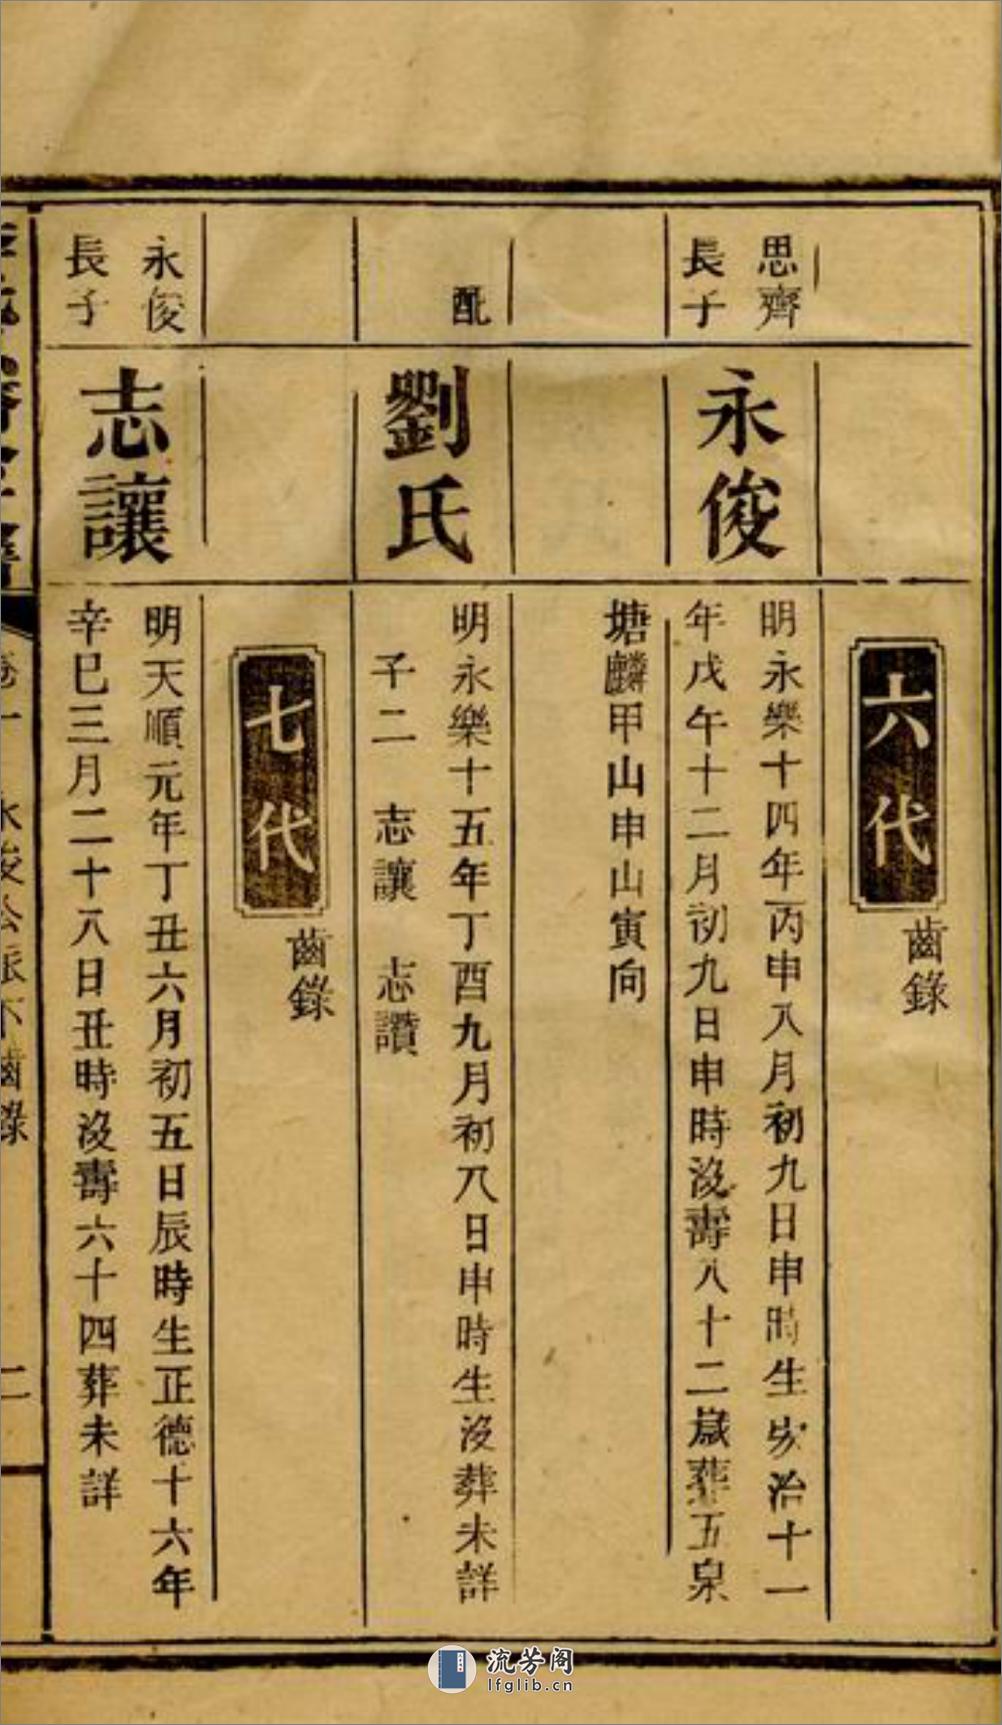 六代
齒錄
思齊
長子
永俊
明永樂十四年丙申八月初九日申時生治十一
年戊午十二月初九日申時沒壽八十二歲葬五泉
塘麟甲山申山寅向
配
劉氏
明永樂十五年丁酉九月初八日申時生沒葬未詳
子二　志讓　志讚
七代
齒錄
永俊
長子
志讓
明天順元年丁丑六月初五日辰時生正德十六年
辛巳三月二十八日丑時沒壽六十四葬未詳
卷一
永俊公派下齒錄
二
流芳阁
lfglib.cn